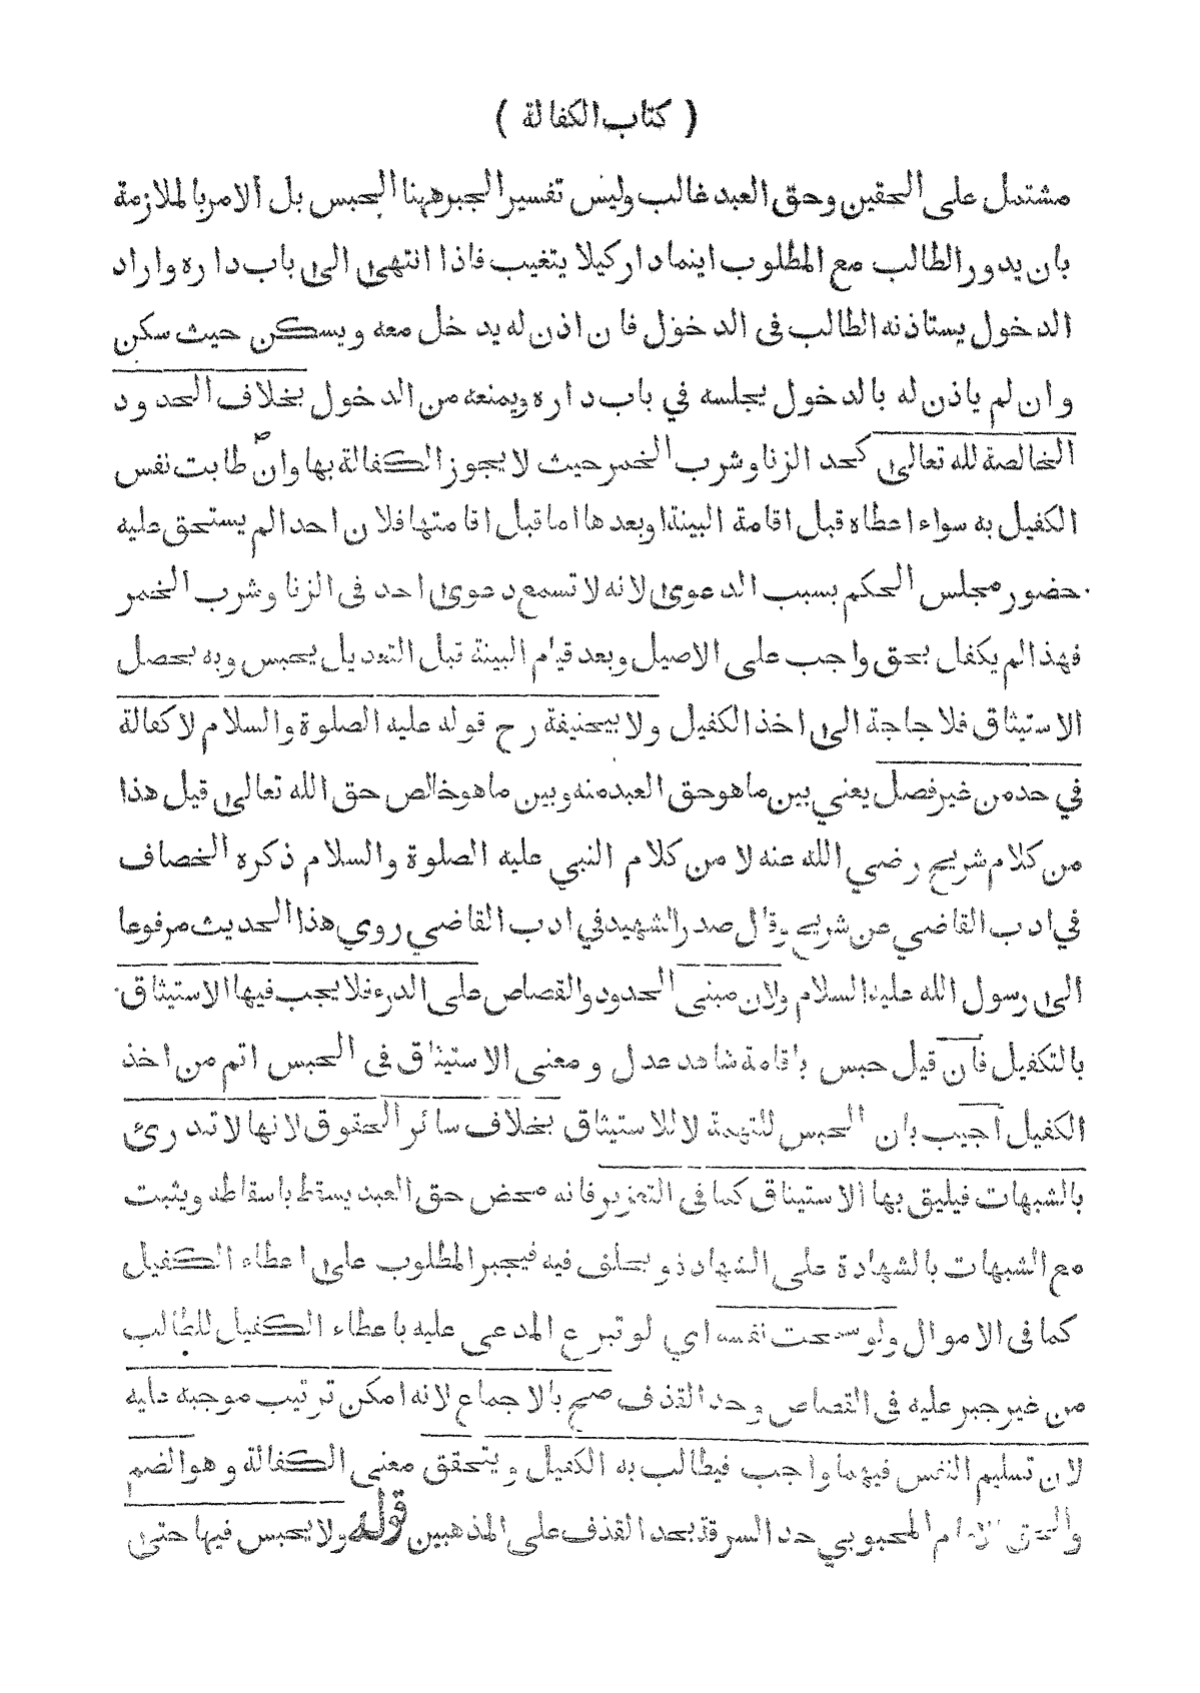 ( كتاب الكفالة )
مشتمل على الحقين وحق العبد غالب وليس تفسير الجبر ههنا الحبس بل الامر بالملازمة
بان يدور الطالب مع المطلوب اينما دار كيلا يتغيب فاذا انتهى الى باب داره واراد
الدخول يستاذنه الطالب فى الدخول فان اذن له يدخل معه ويسكن حيث سكن
وان لم ياذن له بالدخول يجلسه في باب داره ويمنعه من الدخول بخلاف الحدود
الخالصة لله تعالى كحد الزنا وشرب الخمر حيث لا يجوز الكفالة بها وان طابت نفس
الكفيل به سواء اعطاه قبل اقامة البينة او بعدها اما قبل اقامتها فلان احدا لم يستحق عليه
حضور مجلس الحكم بسبب الدعوى لانه لا تسمع دعوى احد فى الزنا وشرب الخمر
فهذا لم يكفل بحق واجب على الاصيل وبعد قيام البينة قبل التعديل يحبس وبه يحصل
الاستيثاق فلا حاجة الى اخذ الكفيل ولابيحنيفة رح قوله عليه الصلوة والسلام لا كفالة
في حد من غير فصل يعني بين ما هو حق العبد منه وبين ما هو خالص حق الله تعالى قيل هذا
من كلام شريح رضي الله عنه لا من كلام النبي عليه الصلوة والسلام ذكره الخصاف
في ادب القاضي عن شريح وقال صدر الشهيد في ادب القاضي روي هذا الحديث مرفوعا
الى رسول الله عليه السلام ولان مبنى الحدود والقصاص على الدرء فلا يجب فيها الاستيثاق
بالتكفيل فان قيل حبس باقامة شاهد عدل و معنى الاستيثاق فى الحبس اتم من اخذ
الكفيل اجيب بان الحبس للتهمة لا للاستيثاق بخلاف سائر الحقوق لانها لا تندرئ
بالشبهات فيليق بها الاستيثاق كما فى التعزير فانه محض حق العبد يسقط باسقاطه ويثبت
مع الشبهات بالشهادة على الشهادة و يحلف فيه فيجبر المطلوب على اعطاء الكفيل
كما فى الاموال ولو سمحت نفسه اي لو تبرع المدعى عليه باعطاء الكفيل للطالب
من غير جبر عليه فى القصاص وحد القذف صح بالاجماع لانه امكن ترتيب موجبه عليه
لان تسليم النفس فيهما واجب فيطالب به الكفيل ويتحقق معنى الكفالة وهو الضم
والحق الامام المحبوبي حد السرقة بحد القذف على المذهبين قوله ولا يحبس فيها حتى